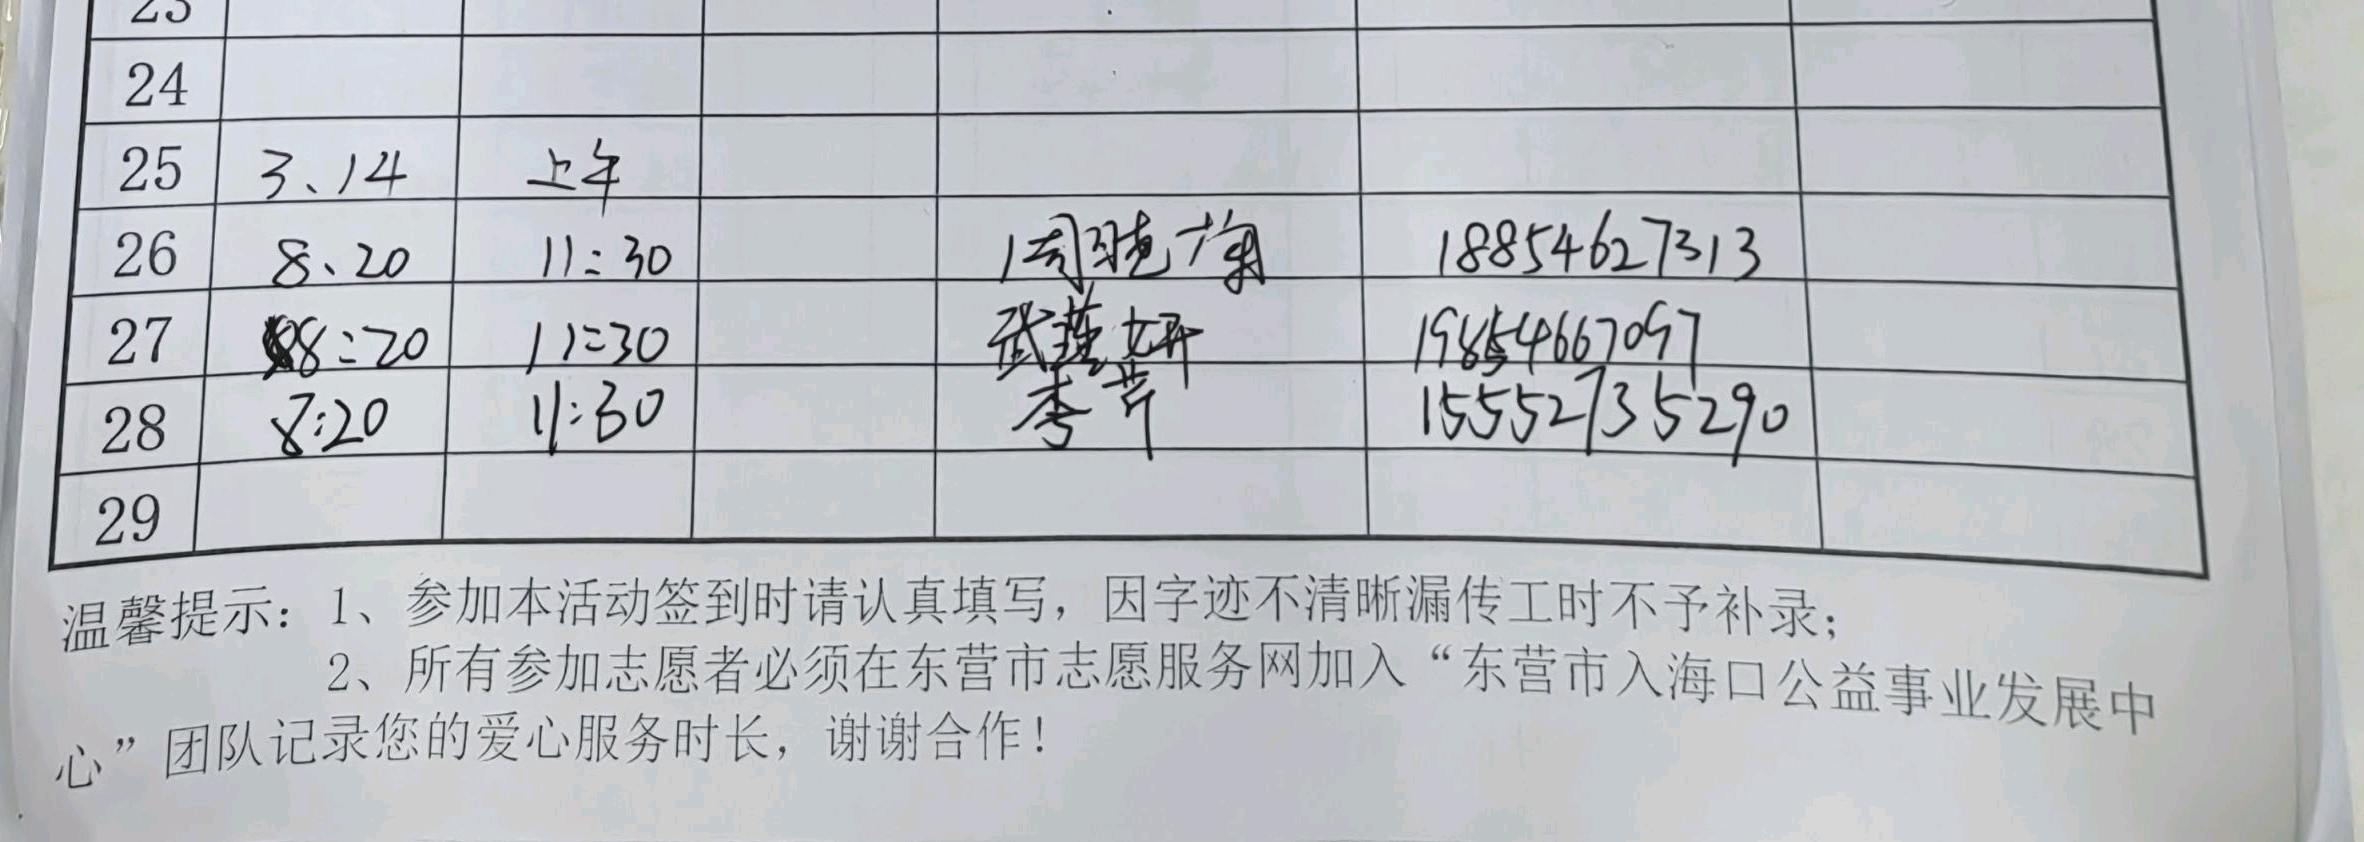 23
24
25 3、14 上午
26 8、20 11:30 周晓梅 18854627313
27 8:20 11:30 武瑾妍 19854667097
28 8:20 11:30 李芹 15552735290
29
温馨提示：1、参加本活动签到时请认真填写，因字迹不清晰漏传工时不予补录；
2、所有参加志愿者必须在东营市志愿服务网加入“东营市入海口公益事业发展中
心”团队记录您的爱心服务时长，谢谢合作！